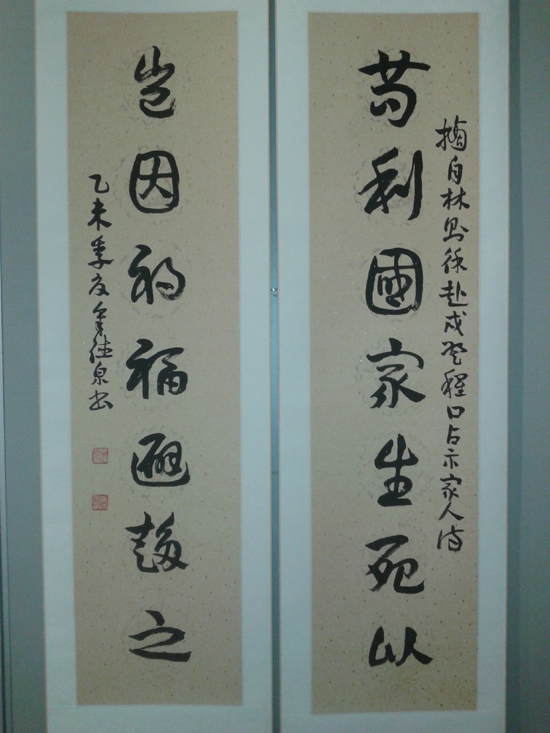 摘自林則徐赴戍登程口占示家人詩
苟利國家生死以
豈因禍福避趨之
乙未季夏泉書